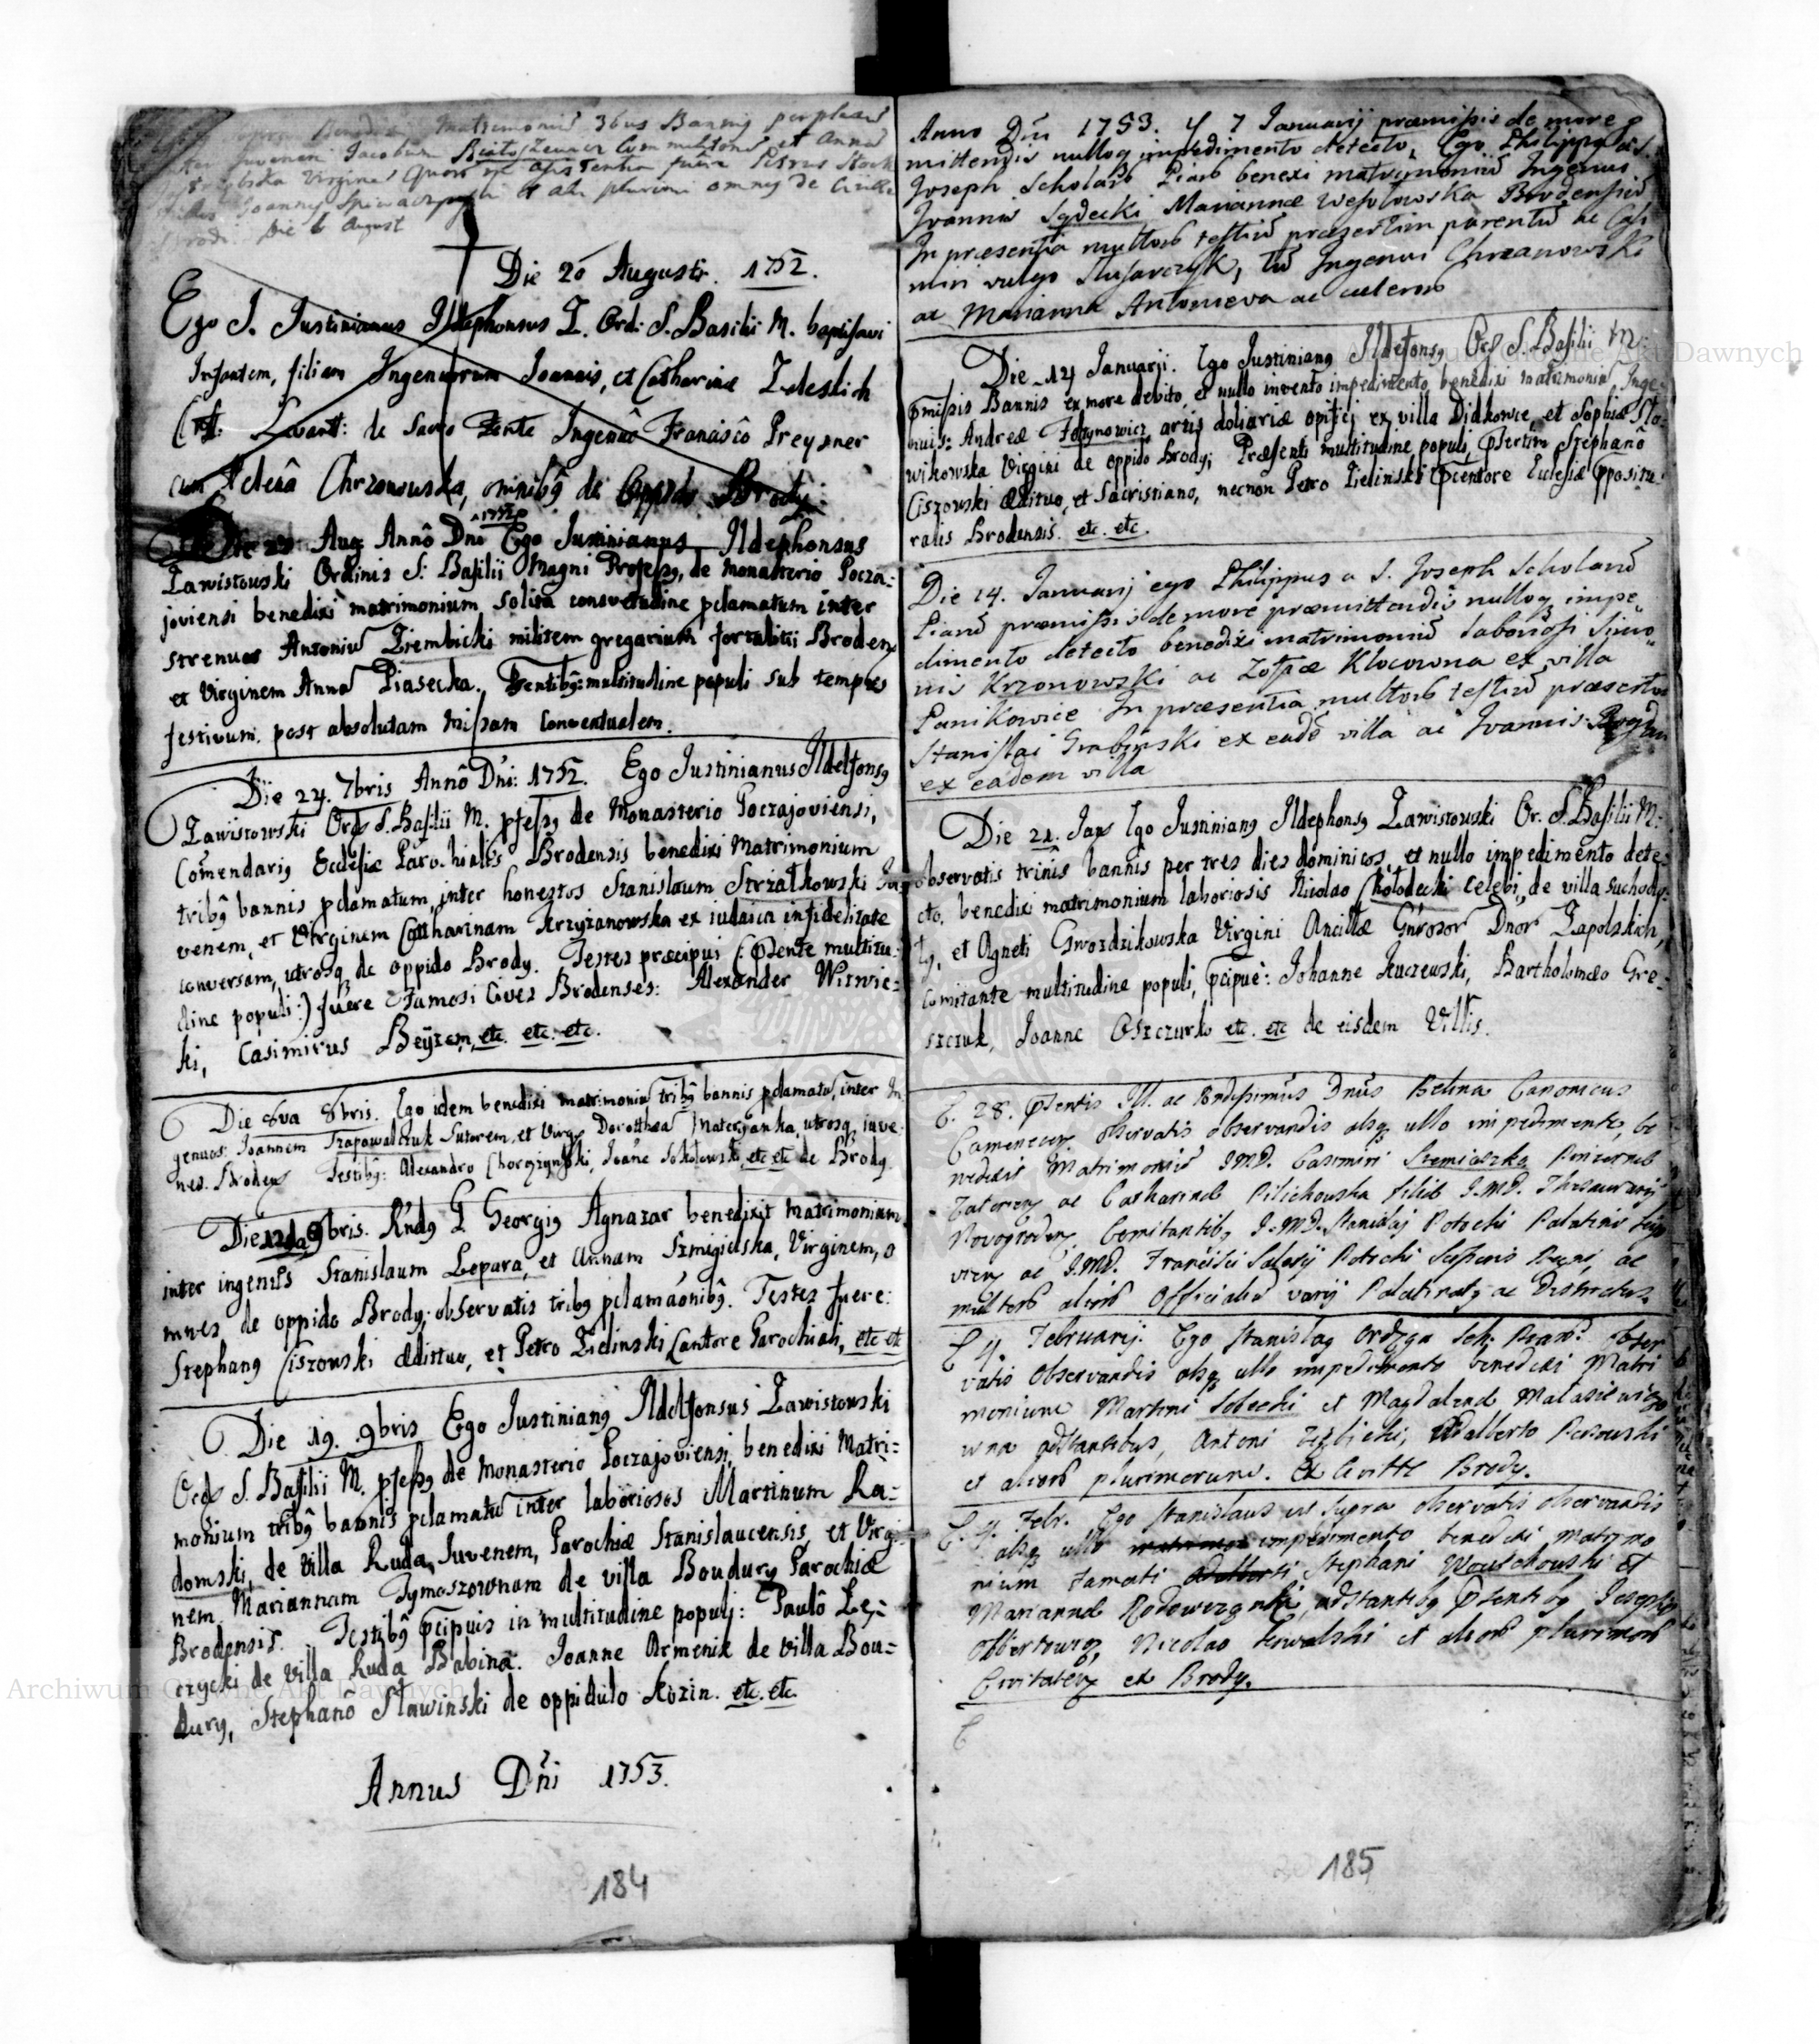 Matrimoniũ 3bus Bannis
Juvenem Jacobum et Anna
Virginẽ Quor
Joannes et alii plurimi omnes de Civitte
Brodi Die 6 August
Die 20 Augusti. 1752.
Ego J. Justinianus Ildephonsus Z. Ord: S. Basilii M. baptisavi
Infantem, filiam Ingenuorum Joannis, et Catharinæ
de Sacro Fonte Ingenuô Franciscô Preysner
cum Helenâ Chrzonowska, omnibꝯ de Oppido Brody.
Aug Annô Dnî 1752 Ego Justinianus Ildephonsus
Zawistowski Ordinis S: Basilii Magni Professꝯ, de Monasterio Pocza=
joviensi benedixi matrimonium solita consvetudine pclamatum inter
strenuos Antoniũ Ziembicki militem gregarium fortalitii Brodensꝯ
et Virginem Annã Piasecka. multitudine populi sub tempus
festivum. post absolutam Missam Conventualem.
Die 24. 7bris Annô Dni: 1752. Ego Justinianus Ildelfonsꝯ
Zawistowski Ord: S. Basilii M. pfessꝯ de Monasterio Poczajoviensi,
Comendariꝯ Ecclesiæ Parochialis Brodensis benedixi Matrimonium
tribꝯ bannis pclamatum, inter honestos Stanislaum Strzałkowski Ju
venem, et Virginem Catharinam Krzyżanowska ex iudaica infidelitate
conversam, utrosq̃ de oppido Brody. Testes præcipui (: pñte multitu=
dine populi :) fuere Famosi Cives Brodenses: Alexander Witwic=
ki, Casimirus Beÿzem, etc. etc. etc.
Die 8va 8bris. Ego idem benedixi matrimoniũ tribꝯ bannis pclamatũ, inter In
genuos: Joannem Trapawalczuk Sutorem, et Virgꝯ Dorotheã Materÿanka, utrosq̃ iuve
nes. Brodensꝯ Testibꝯ: Alexandro Joañe Sokołowski, etc etc de Brody.
Die 12da 9bris. Rndꝯ P Georgiꝯ Agnazar benedixit matrimonium
inter ingenuos Stanislaum Lepara, et Annam Szmigielska, Virginem, o
mnes de oppido Brody; observatis tribꝯ pclamaõnibꝯ. Testes fuere:
Stephanꝯ Ciszowski ædittuo, et Petro Zielinski Cantore Parochiali, etc etc
Die 19. 9bris Ego Justinianꝯ Ildelfonsus Zawistowski
Ord: S. Basilii M. pfessꝯ de Monasterio Poczajoviensi, benedixi Matri=
monium tribꝯ bannis pclamatũ inter laboriosos Martinum Ra=
domski, de Villa Ruda, Juvenem, Parochiæ Stanislaucensis, et Virgi=
nem Mariannam Tymoszownam de villa Boudury Parochiæ
Brodensis. Testibꝯ pcipuis in multitudine populi: Paulô Le=
czycki de villa Ruda Babina. Joanne Ormenik de Villa Bou=
dury, Stephanô Sławinski de oppidulo Kozin. etc. etc.
Annus Dñi 1753.
184
Anno Dñi 1753. 7 Januarij præmissis de more p
mittendis nulloq̃ impedimento detecto, Ego Philippꝯ a S.
Joseph Scholarũ Piarũ benexi matrymoniũ Ingenui
Joannis Sądecki Mariannæ Wesołowska Brodensiũ
In præsentia multorũ testiũ præsertim parentũ ac Casi
miri vulgo Slusarczyk, tũ Ingenui Chrzanowski
ac Marianna Antoniewa ac cæterorũ
Die 14 Januarij. Ego Justinianꝯ Ildefonsꝯ Ord S. Basilii M:
pmissis Bannis ex more debito, et nullo invento impedimento, benedixi matrimoniũ Inge=
nuis: Andreæ artis doliariæ opifici ex villa Didkowce, et Sophiæ Sło=
wikowska Virgini de oppido Brody; Præsenti multitudine populi, psertim Stephanô
Ciszowski ædituo, et Sacristiano, necnon Petro Zielinski pcentore Ecclesiæ Ppositu=
ralis Brodensis. etc. etc.
Die 14. Januarij ego Philippus a S. Joseph Scholarũ
Piarũ præmissis de more præmittendis nulloq̃ impe=
dimento detecto benedixi matrimoniũ Laboriosi Simo=
nis Krzonowski ac Zofiæ Klocowna ex villa
Panikowice In præsentia multorũ testiũ præsertim
Stanislai Grabinski ex eadẽ villa ac Joannis
ex eadem villa
Die 21. Jan Ego Justinianꝯ Ildephonsꝯ Zawistowski Or. S. Basilii M:
observatis trinis bannis per tres dies dominicos, et nullo impedimento dete=
cto, benedixi matrimonium laboriosis Nicolao Chołodecki Celebi, de villa Suchody:
ły, et Agneti Gwozdzikowska Virgini Ancillæ Gñrosor Dnor Zapolskich,
Comitante multitudine populi, pcipuè: Johanne Kuczewski, Bartholomæo Gre=
szczuk, Joanne Oszczurko etc. etc de eisdem Villis.
28. pñtis Ill. ac Rndissimus Dnûs Betina Canonicus
Camenecensꝯ observatis observandis absq̃ ullo impedimento, be
nedixit Matrimoniũ I.M.D. Casimiri Szemiaszko Pincernæ
ac Catharinæ Pilichowska filiæ I.M.D. Thesaurarij
Novogrodensꝯ. Comitantibꝯ I.M.D. Stanislaj Potocki Palatini
ac I.M.D. Francisci Salesij Potocki Regni, ac
multorũ aliorũ Officialiũ varij Palatinatꝯ ac Districtus.
4. Februarij. Ego Stanislaꝯ Ordęga obser
vatis observandis absq̃ ullo impedimento benedixi Matri
monium Martini Sobecki et Magdalenæ Matasiewiczo
wna adstantibus, Antoni Adalberto
et aliorũ plurimorum. Ex Civitte Brody.
4. Febr. Ego Stanislaus ut supra observatis observandis
absq̃ ullo impedimento benedixi matrymo
nium Famati Stephani Woulchowski et
Mariannæ adstantibꝯ pñtibꝯ Josepho
Nicolao Kowalski et aliorũ plurimorũ
Civitatensꝯ ex Brody.
185
Archiwum Główne Akt Dawnych
Archiwum Główne Akt Dawnych